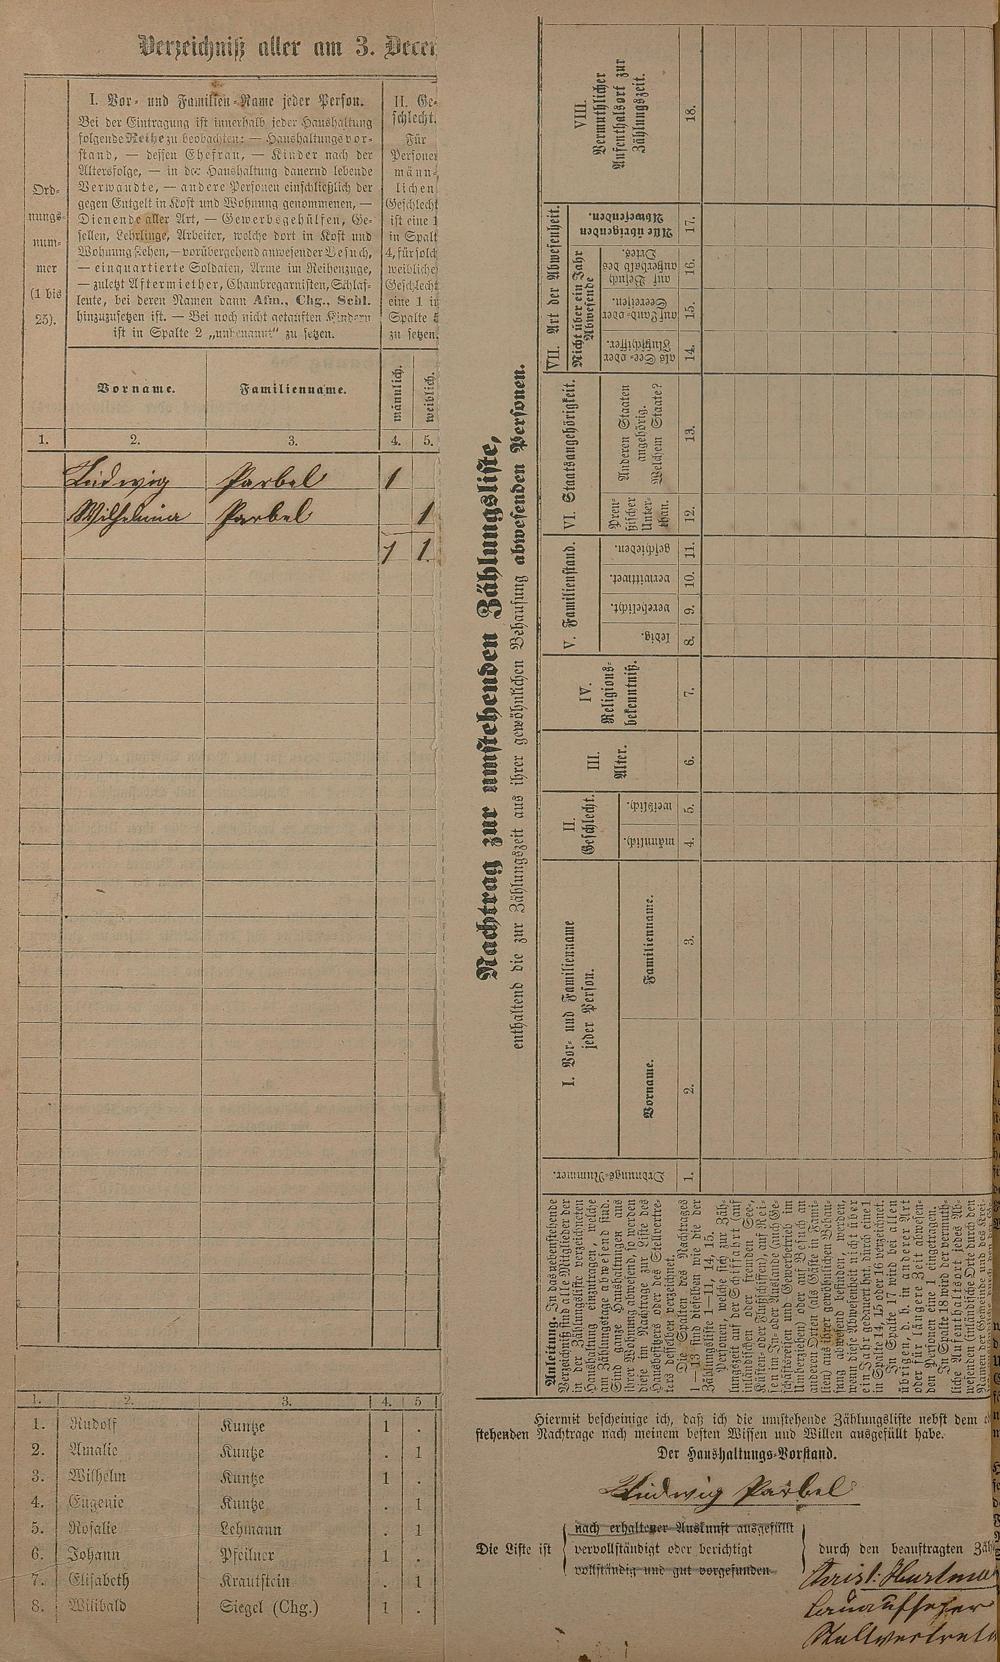 Verzeichniß aller am 3. Decem
Ord-
nungs-
num-
mer
(1 bis
25).
I. Vor- und Familien-Name jeder Person.
Bei der Eintragung ist innerhalb jeder Haushaltung
folgende Reihe zu beobachten: — Haushaltungsvor-
stand, — dessen Ehefrau, — Kinder nach der
Altersfolge, — in der Haushaltung dauernd lebende
Verwandte, — andere Personen einschließlich der
gegen Entgelt in Kost und Wohnung genommenen, —
Dienende aller Art, — Gewerbsgehülfen, Ge-
sellen, Lehrlinge, Arbeiter, welche dort in Kost und
Wohnung stehen, — vorübergehend anwesender Besuch,
— einquartierte Soldaten, Arme im Reihenzuge,
— zuletzt Aftermiether, Chambregarnisten, Schlaf-
leute, bei deren Namen dann Afm., Chg., Schl.
hinzuzusetzen ist. — Bei noch nicht getauften Kindern
ist in Spalte 2 „unbenannt" zu setzen.
II. Ge-
schlecht.
Für
Personen
männ-
lichen
Geschlecht
ist eine 1
in Spalt
4, für solch
weibliche
Geschlecht
eine 1 in
Spalte 5
zu setzen.
Vorname. Familienname. männlich. weiblich.
1. 2. 3. 4. 5.
Ludwig Parbel 1
Wilhelmina Parbel 1
1 1.
1. 2. 3. 4. 5
1. Rudolf Kuntze 1 .
2. Amalie Kuntze . 1
3. Wilhelm Kuntze 1 .
4. Eugenie Kuntze . 1
5. Rosalie Lehmann . 1
6. Johann Pfeilner 1 .
7. Elisabeth Krautstein . 1
8. Wilibald Siegel (Chg.) 1 .
Nachtrag zur umstehenden Zählungsliste,
enthaltend die zur Zählungszeit aus ihrer gewöhnlichen Behausung abwesenden Personen.
Anleitung. In das nebenstehende
Verzeichniß sind alle Mitglieder der
in der Zählungsliste verzeichneten
Haushaltung einzutragen, welche
am Zählungstage abwesend sind.
Sind ganze Haushaltungen aus
ihrer Wohnung abwesend, so werden
diese im Nachtrage zur Liste des
Hausbesitzers oder des Stellvertre-
ters desselben verzeichnet.
Die Spalten des Nachtrages
1—13 sind dieselben wie die der
Zählungsliste 1—11, 14, 15.
Personen, welche sich zur Zäh-
lungszeit auf der Schiffahrt (auf
inländischen oder fremden See-,
Küsten- oder Flußschiffen), auf Rei-
sen im In- oder Auslande (auch Ge-
schäftsreisen und Gewerbebetrieb im
Umherziehen) oder auf Besuch an
anderen Orten (als Gäste in Fami-
lien) aus ihrer gewöhnlichen Behau-
sung abwesend befinden, werden,
wenn diese Abwesenheit nicht über
ein Jahr gedauert hat, durch eine 1
in Spalte 14, 15 oder 16 verzeichnet.
In Spalte 17 wird bei allen
übrigen, d. h. in anderer Art
oder für längere Zeit abwesen-
den Personen eine 1 eingetragen.
In Spalte 18 wird der vermuth-
liche Aufenthaltsort jedes Ab-
wesenden (inländische Orte durch den
Namen der Gemeinde und des Krei-
Ordnungs-Nummer.
I. Vor- und Familienname
jeder Person.
Vorname. Familienname.
II.
Geschlecht.
männlich. weiblich.
III.
Alter.
IV.
Religions-
bekenntniß.
V. Familienstand.
ledig. verehelicht. verwittwet. geschieden.
VI. Staatsangehörigkeit.
Preu-
ßischer
Unter-
than.
Anderen Staaten
angehörig.
Welchem Staate?
VII. Art der Abwesenheit.
Nicht über ein Jahr
Abwesende
als See- oder
Flußschiffer.
auf Land- oder
Seereisen.
auf Besuch
außerhalb des
Ortes.
Alle übrigen
Abwesenden.
VIII.
Vermuthlicher
Aufenthalsort zur
Zählungszeit.
1. 2. 3. 4. 5. 6. 7. 8. 9. 10. 11. 12. 13. 14. 15. 16. 17. 18.
Hiermit bescheinige ich, daß ich die umstehende Zählungsliste nebst dem
stehenden Nachtrage nach meinem besten Wissen und Willen ausgefüllt habe.
Der Haushaltungs-Vorstand.
Ludwig Parbel
Die Liste ist
nach erhaltener Auskunft ausgefüllt
vervollständigt oder berichtigt
vollständig und gut vorgefunden
durch den beauftragten Zäh
Christ: